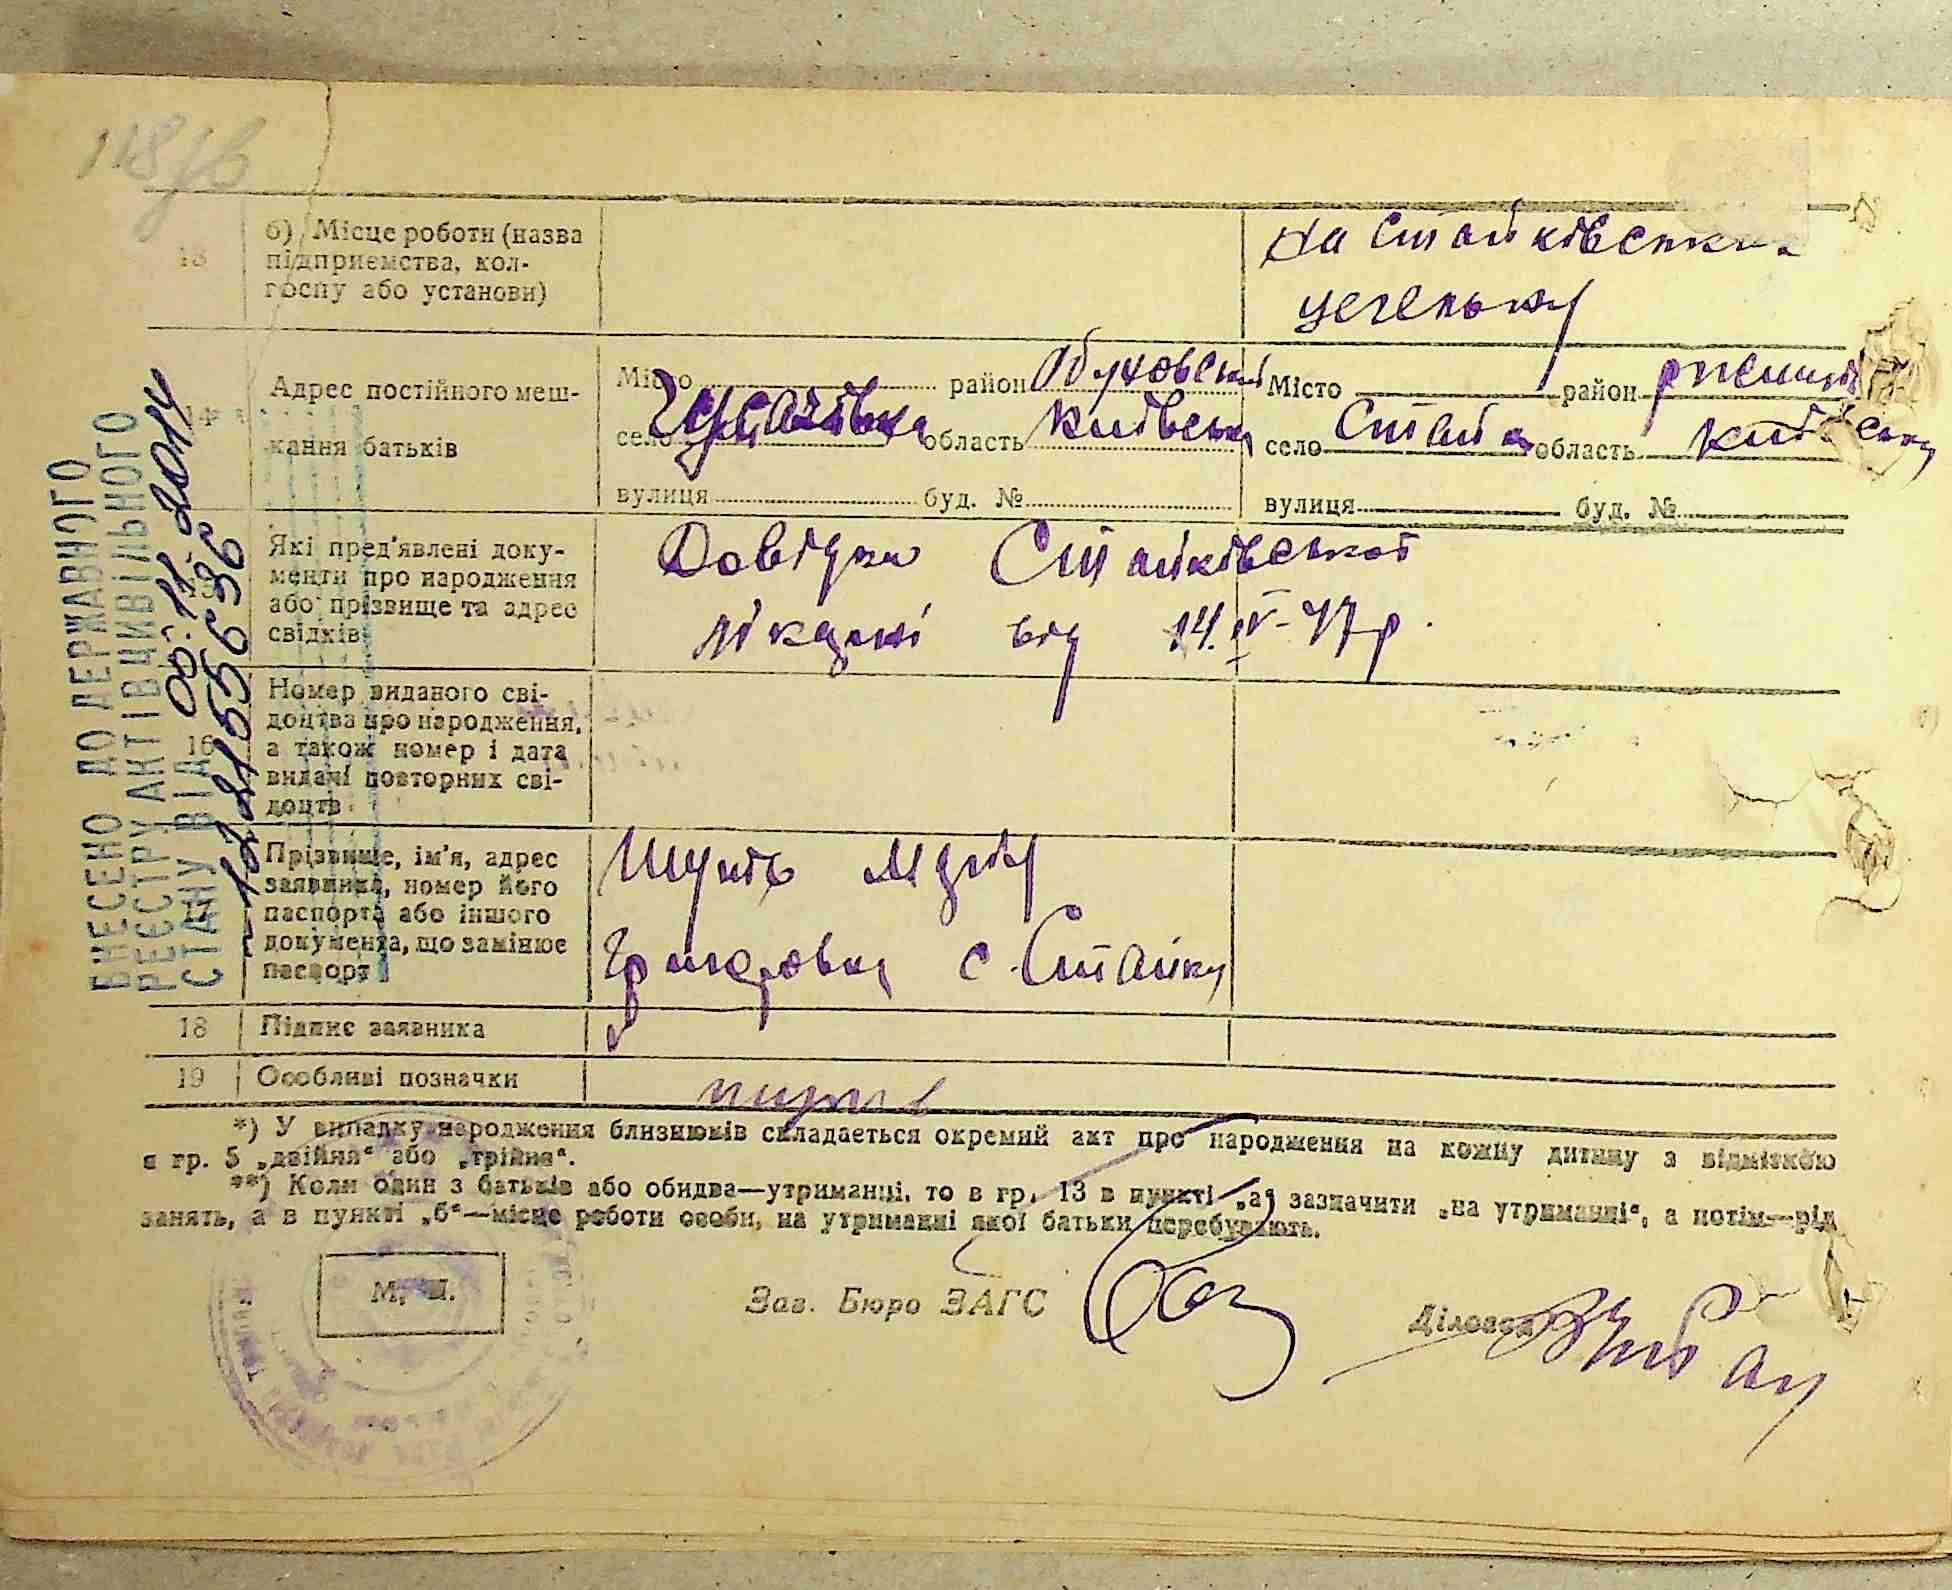 118зв
13
б) Місце роботи (назва
підприємства, кол-
госпу або установи)
на Стайківськ
цегельну
14
Адрес постійного меш-
кання батьків
Місто район Обуховськ
село область Київська
вулиця буд. №
Місто район Ржищів
село Стайки область Київську
вулиця буд. №
Які пред'явлені доку-
менти про народження
або прізвище та адрес
свідків
Довідка Стайківської
лікарні від 14.IV-47р.
16
Номер виданого сві-
доцтва про народження,
а також номер і дата
видачі повторних сві-
доцтв
17
Прізвище, ім'я, адрес
заявника, номер його
паспорта або іншого
документа, що замінює
паспорт
Григоровна с. Стайки
18
Підпис заявника
19
Особливі позначки
*) У випадку народження близнюків складається окремий акт про народження на кожну дитину з відміткою
в гр. 5 „двійня“ або „трійня“.
**) Коли один з батьків або обидва—утриманці, то в гр. 13 в пункті „а“ зазначити „на утриманні“, а потім—рід
занять, а в пункті „б“—місце роботи особи, на утриманні якої батьки перебувають.
М. П.
Зав. Бюро ЗАГС
Діловод
ВНЕСЕНО ДО ДЕРЖАВНОГО
РЕЄСТРУ АКТІВ ЦИВІЛЬНОГО
СТАНУ ВІД 00:11 2014